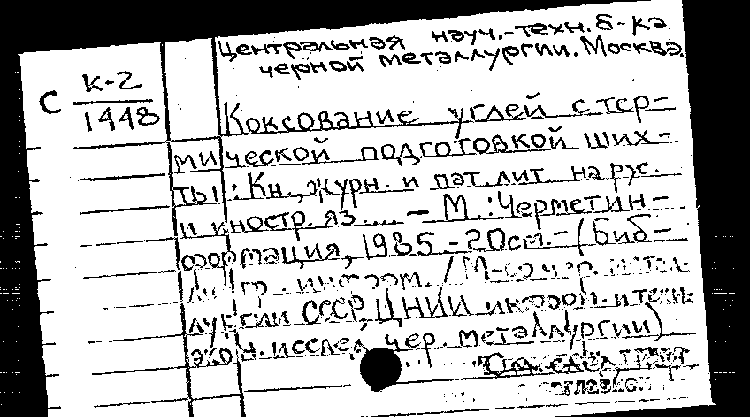 Центральная науч.-техн. б-ка
черной металлургии. Москва.
С К-2
1448
Коксование углей с тер-
мической подготовкой ших-
ты: Кн., журн. и пат. лит. на рус.
и иностр. яз.... - М.: Черметин-
формация, 1985 - 20см. - (Биб-
лиогр. информ. / М-во чер. метал-
лургии СССР, ЦНИИ информ. и техн.
экон. исслед. чер. металлургии)